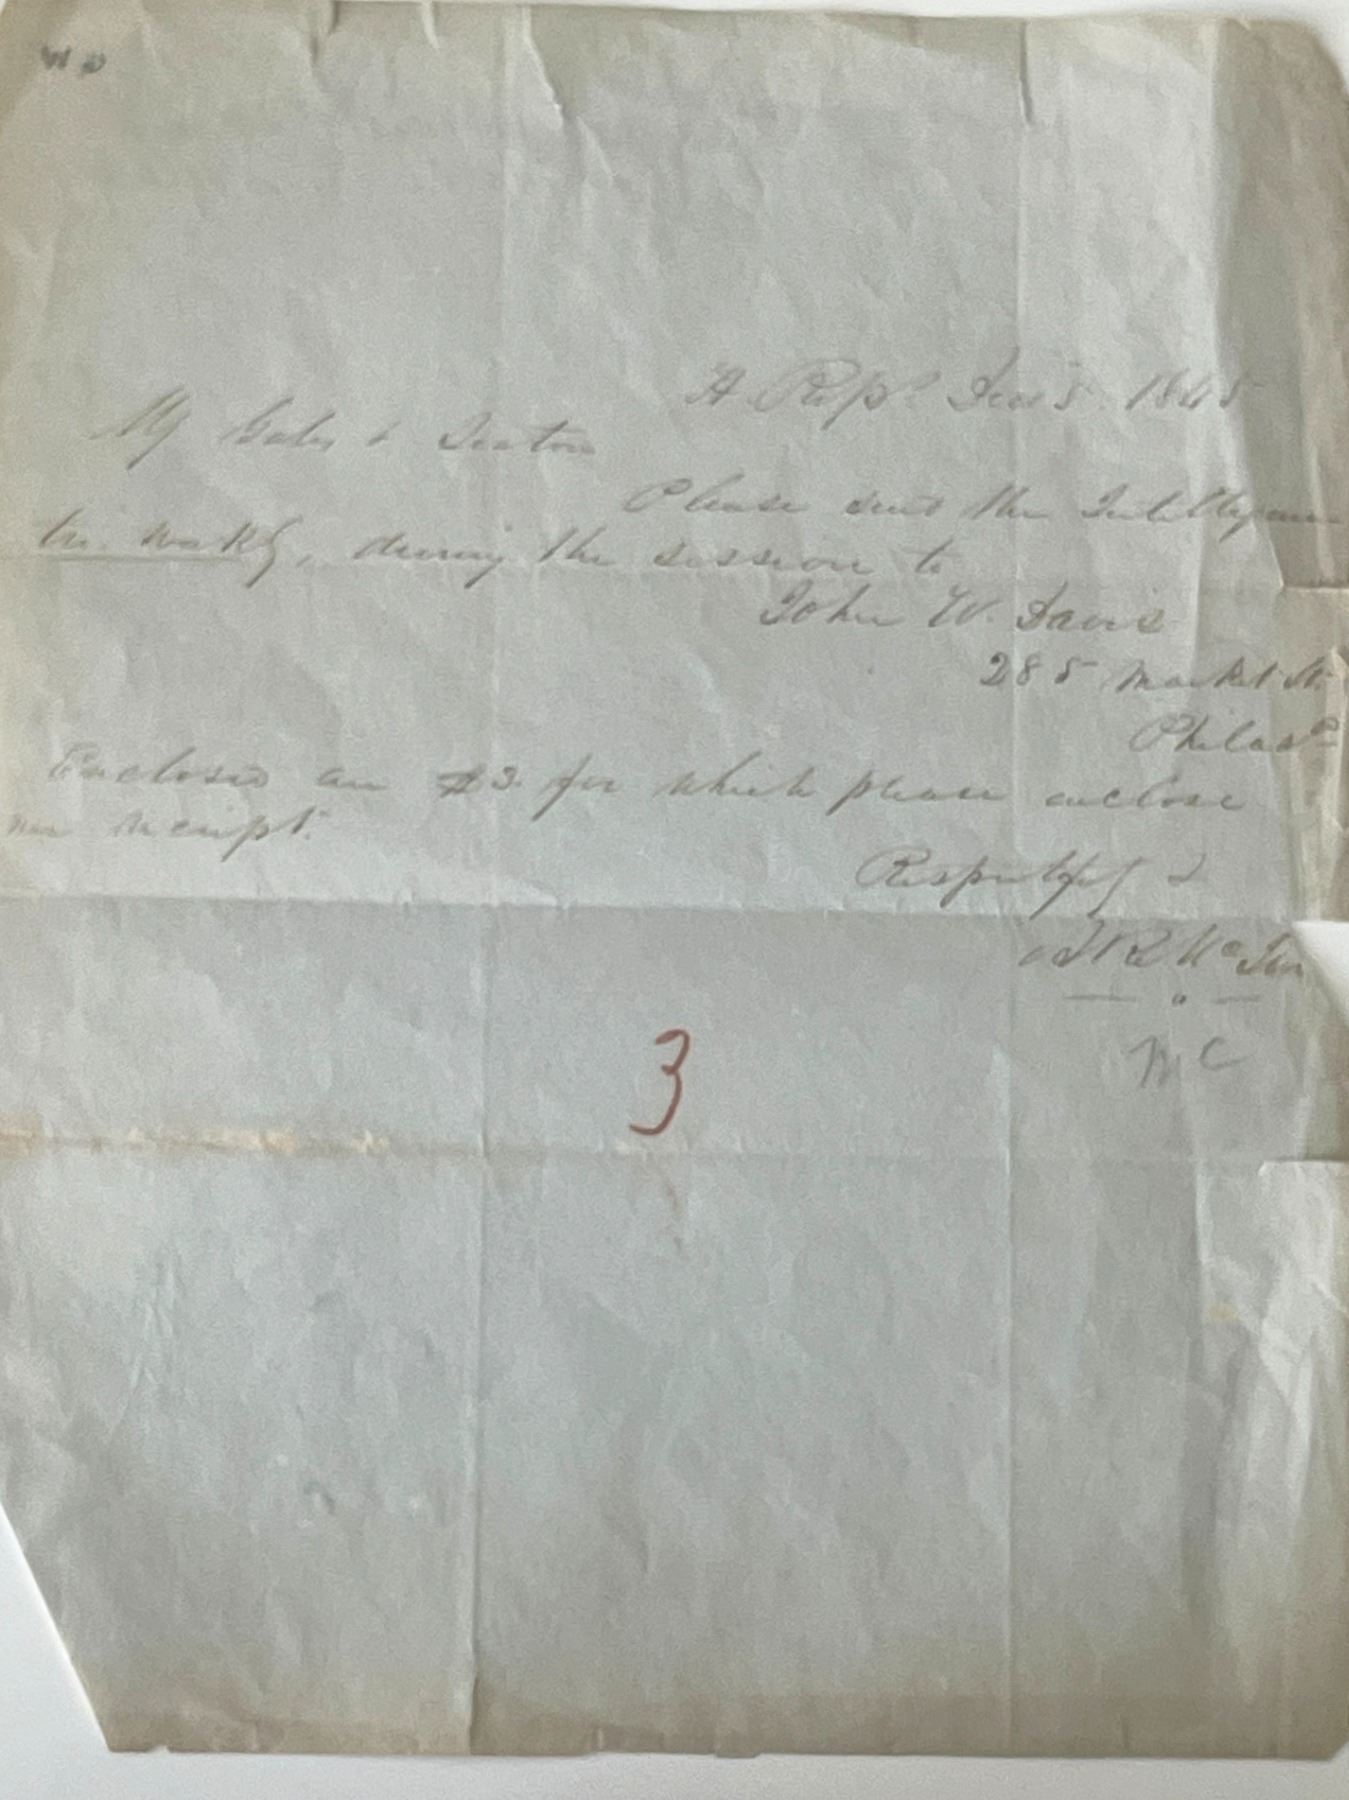 H. Reps. Dec 5. 1845
Mrs Gales & Seaton
Please send the Intelligencer
tri. weekly, during the session to
John W. Davis
285 Market St.
Philada
Enclosed are $3. for which please enclose
me receipt.
Respectfly &
Mc
3
M C